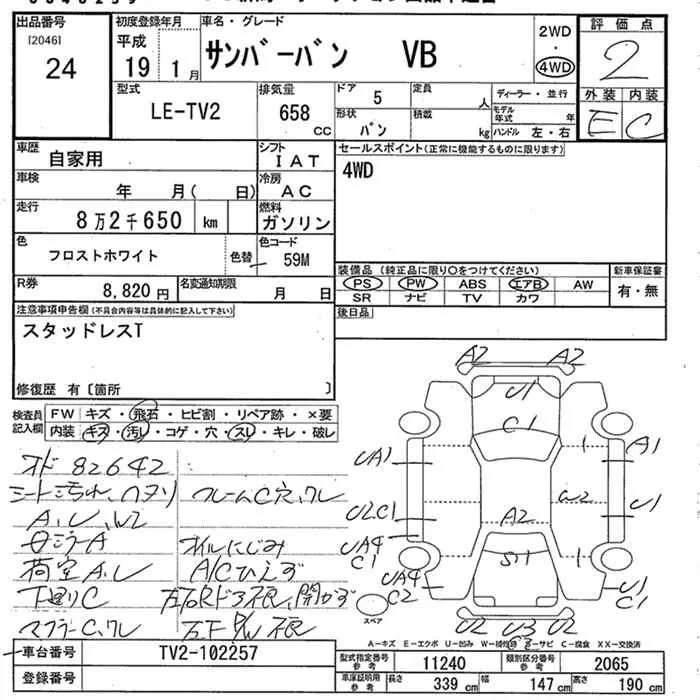 出品番号 初度登録年月 車名・グレード 評価点
[2046] 平成 サンバーバン VB 2WD
24 19 1月 4WD 2
型式 排気量 ドア 5 定員 人 ディーラー・並行 外装 内装
LE-TV2 658 cc 形状 バン 積載 kg モデル年式 年 E C
ハンドル 左・右
車歴 自家用 シフト IAT セールスポイント(正常に機能するものに限ります)
車検 年 月( 日) 冷房 AC 4WD
走行 8万2千650 km 燃料 ガソリン
色 フロストホワイト 色替 色コード 59M
装備品(純正品に限り○をつけてください) 新車保証書
R券 8,820円 名変通知期限 月 日 PS PW ABS エアB AW 有・無
SR ナビ TV カワ
注意事項申告欄(不具合内容等は具体的に記入して下さい) 後日品
スタッドレスT
修復歴 有〔箇所 〕
検査員記入欄 FW キズ・飛石・ヒビ割・リペア跡・×要
内装 キズ・汚レ・コゲ・穴・スレ・キレ・破レ
A2 A2
U1
C1
UA1 1 A1
U2C1 W2 U1
A2
UA4 C1 1
S1
UA4 C2 U1 C1
U2 U3 U2
スペア
オド 82642
シート汚れ、ハヌリ フレームC穴、クレ
A、U、W2
オイルにじみ
荷室A、レ A/Cひえず
下廻りC
マフラーC、クレ
A-キズ E-エクボ U-凹み W-補修跡 S-サビ C-腐食 XX-交換済
車台番号 TV2-102257 型式指定番号 参考 11240 類別区分番号 参考 2065
登録番号 車庫証明用 参考 長さ 339 cm 幅 147 cm 高さ 190 cm